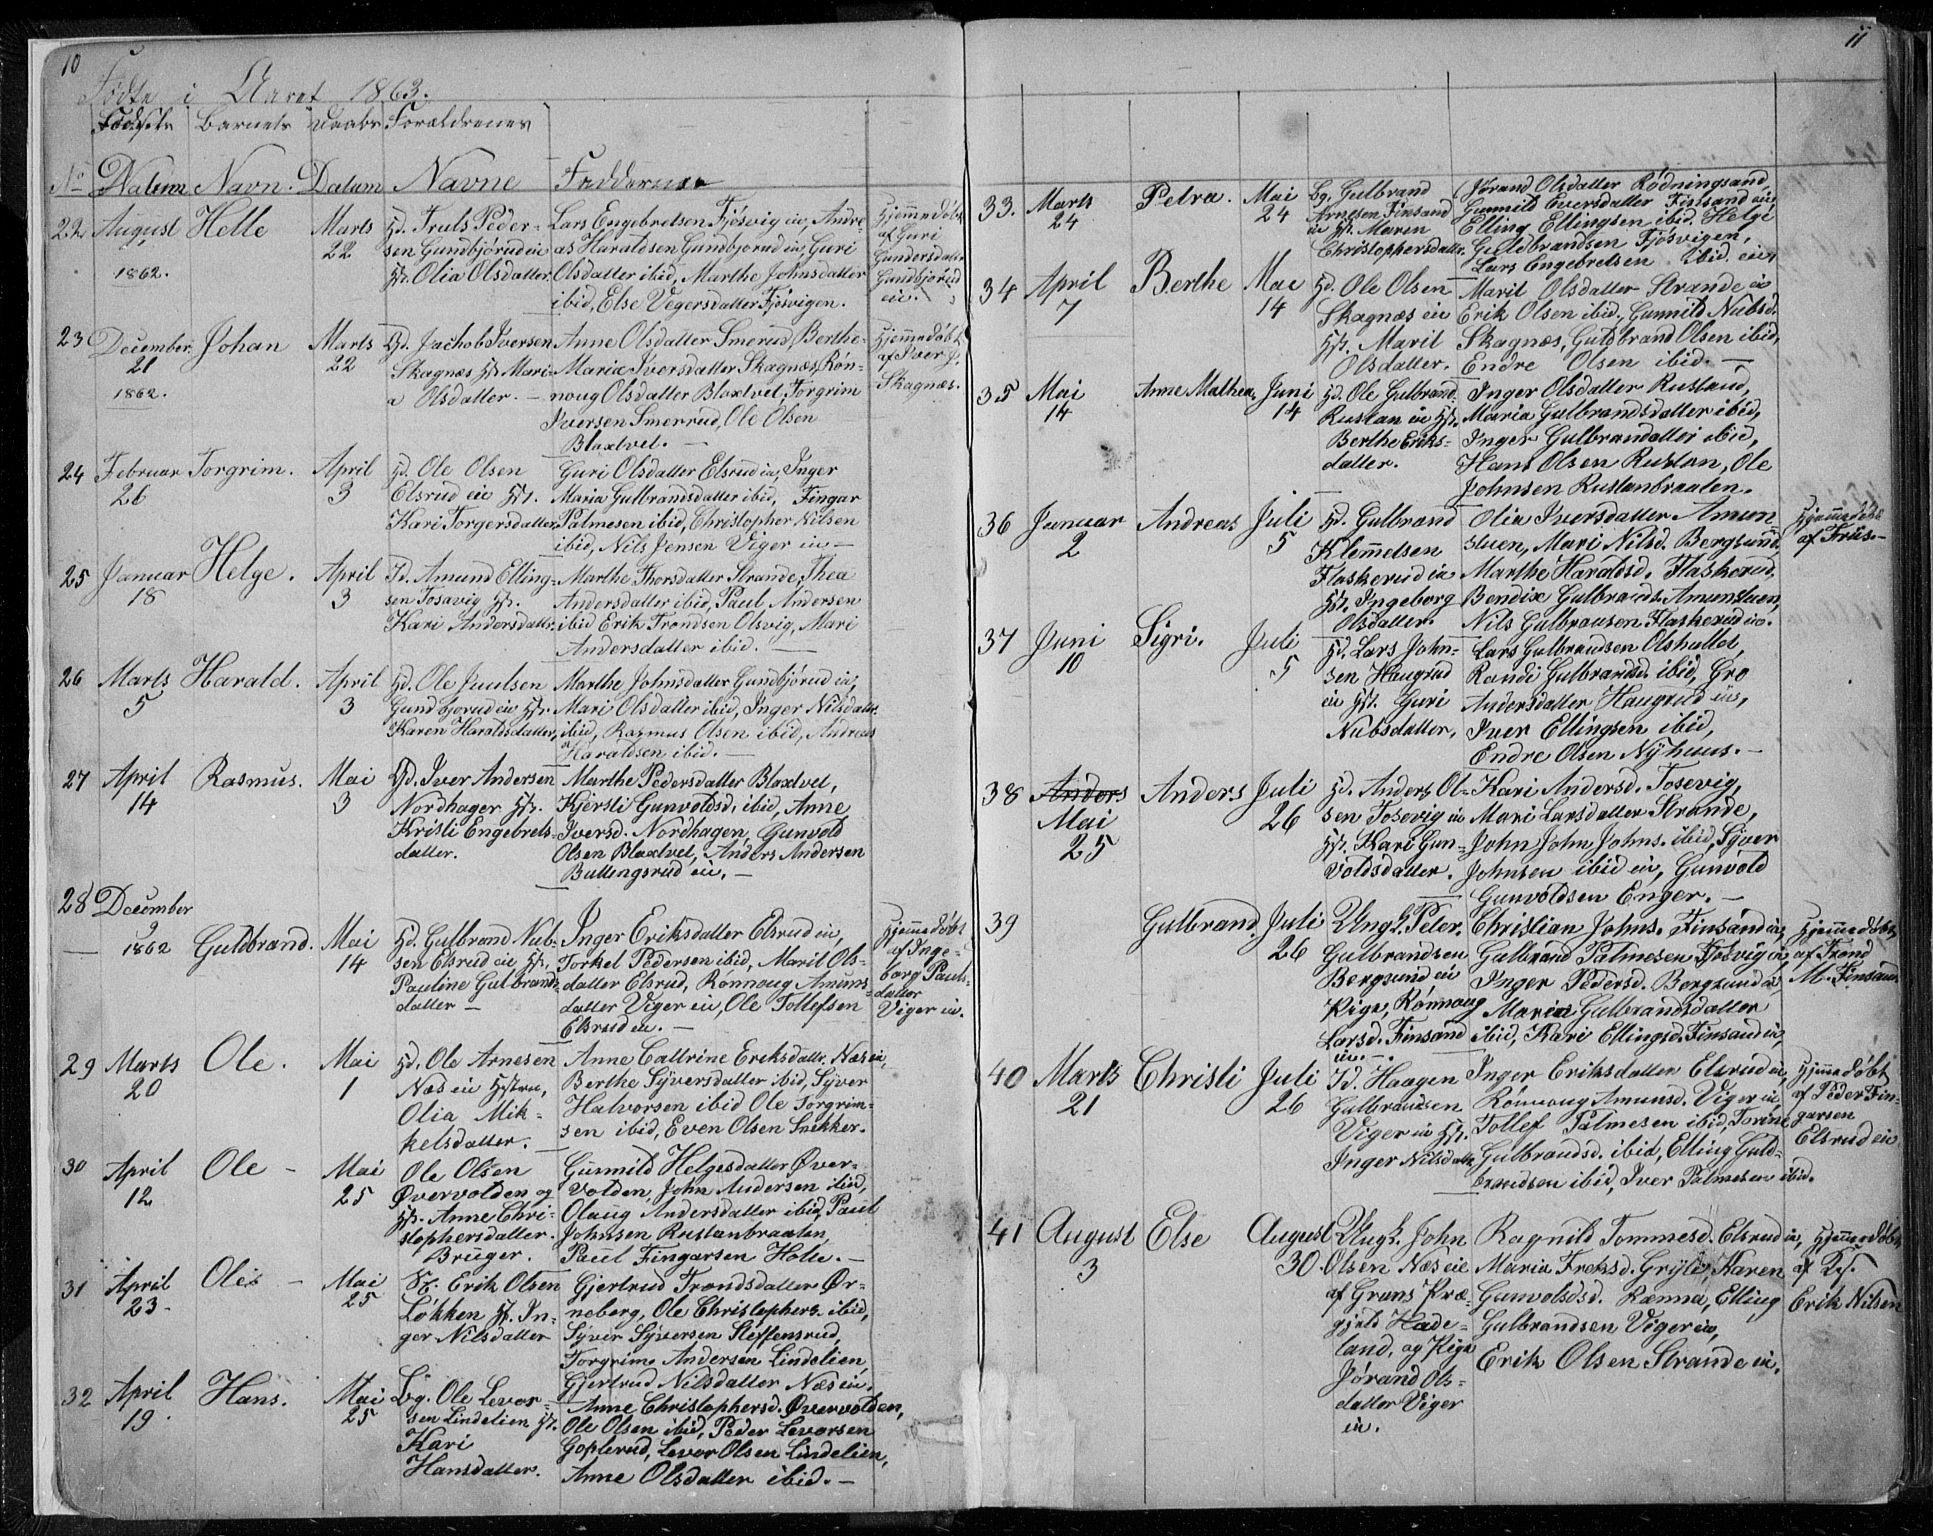 10
Fødte i Aaret 1863.
Fødsels Barnets Daabs Forældrenes
No Datum Navn. Datum Navne Faddernes
22 August 1862. Helle Marts 22
Hd. Truls Peder-
sen Gundbjörud eie
Hst. Olia Olsdatter
Lars Engebretsen Fjösvig eie, Andre-
as Haraldsen Gundbjorud eie, Guri
Olsdatter ibid, Marthe Johnsdatter
ibid, Else Vegersdatter Fjösvigen.
Hjemmedöbt
af Guri
Gundersdatter
Gundbjörud
eie.
23 December 21 1862. Johan Marts 22
Hd. Jachob Iversen
Skagnæs Hst. Mari-
a Olsdatter. —
Anne Olsdatter Smerud, Berthe-
Maria Iversdatter Skagnæs, Rön-
noug Olsdatter Blaxtvet, Torgrim
Iversen Smerrud, Ole Olsen
Blaxtvet. —
Hjemmedöbt
af Iver J.
Skagnæs.
24 Februar 26 Torgrim. April 3
Hd. Ole Olsen
Elsrud eie Hst.
Kari Torgersdatter,
Guri Olsdatter Elsrud eie, Inger
Maria Gulbrandsdatter ibid, Fingar
Palmesen ibid, Christopher Nilsen
ibid, Nils Jensen Viger eie —
25 Januar 18 Helge. April 3
Id. Amund Elling-
sen Tosavig Hst.
Kari Andersdattr.
Marthe Thorsdatter Strande, Thea
Andersdatter ibid, Paul Andersen
ibid Erik Trondsen Olsvig, Mari
Andersdatter ibid. —
26 Marts 5 Harald. April 3
Hd. Ole Juulsen
Gundbjorud eie Hst.
Karen Haraldsdatter,
Marthe Johnsdatter Gundbjörud eie,
Mari Olsdatter ibid, Inger Nilsdattr.
ibid, Rasmus Olsen ibid, Andreas
Haraldsen ibid. —
27 April 14 Rasmus. Mai 3
Hd. Iver Andersen
Nordhagen Hst.
Kristi Engebrets-
datter.
Marthe Pedersdatter Blaxtvet,
Kjersti Gunvoldsd. ibid, Anne
Iversd. Nordhagen, Gunvold
Olsen Blaxtvet, Anders Andersen
Bullingsrud eie, —
28 December 9 1862 Guldbrand. Mai 14
Hd. Gulbrand Nub-
sen Elsrud eie Hst,
Pauline Gulbrands-
datter —
Inger Eriksdatter Elsrud eie,
Torkel Pedersen ibid, Marit Ols-
datter Elsrud, Rönnoug Amunds-
datter Viger eie, Ole Tollefsen
Elsrud eie. —
Hjemmedöbt
af Inge-
borg Pauls-
datter
Viger eie.
29 Marts 20 Ole. Mai 1
Hd. Ole Arnesen
Næs eie Hstru,
Olia Mik-
kelsdatter. —
Anne Cathrine Eriksdattr. Næs eie,
Berthe Syversdatter ibid, Syver
Halvorsen ibid Ole Torgrim-
sen ibid, Even Olsen Snekker.
30 April 12 Ole — Mai 25
Ole Olsen
Øvervolden og
Hst. Anne Chri-
stophersdatter.
Bruger.
Gunnild Helgesdatter Øver-
volden, John Andersen ibid,
Olaug Andersdatter ibid, Paul
Johnsen Rustanbraaten,
Paul Fingarsen Holte. —
31 April 23 Oles — Mai 25
Sr. Erik Olsen
Lökken Hst. In-
ger Nilsdatter
Gjertrud Trondsdatter Ør-
neberg, Ole Christophers. ibid,
Syver Syversen Steffensrud,
Torgrim Andersen Lindelien,
Gjertrud Nilsdatter Næs eie.
32 April 19 Hans. Mai 25
Bg. Ole Levor-
sen Lindelien Hst.
Kari
Hansdatter.
Anne Christophersd. Øvervolden,
Ole Olsen ibid, Peder Levorsen
Goplerud, Levor Olsen Lindelien,
Anne Olsdatter ibid. —
11
33. Marts 24 Petra. Mai 24
Bg. Gulbrand
Arnesen Finsand
eie Hst. Maren
Christophersdattr.
Jörand Olsdatter Rødningsand,
Gunnild Eversdatter Finsand eie,
Elling Ellingsen ibid. Helge
Guldbrandsen Fjösvigen,
Lars Engebretsen ibid. eie,
34 April 7 Berthe Mai 14
Hd. Ole Olsen
Skagnæs eie
Hst. Marit
Olsdatter.
Marit Olsdatter Strande eie
Erik Olsen ibid. Gunnild Nubsd.
Skagnæs, Guldbrand Olsen ibid,
Endre Olsen ibid. —
35 Mai 14 Anne Mathea, Juni 14
Hd. Ole Gulbrand.
Rustan eie Hst.
Berthe Eriks-
datter.
Inger Olsdatter Rustand,
Maria Gulbrandsdatter ibid,
Inger Gulbrandatter ibid,
Hans Olsen Rustan, Ole
Johnsen Rustanbraaten.
36 Januar 2 Andreas Juli 5
Hd. Gulbrand
Klemmetsen
Flaskerud eie
Hst. Ingeborg
Olsdatter.
Olia Iversdatter Amun-
stuen, Mari Nilsd. Bergsund.
Marthe Haraldsd. Flaskerud,
Bendix Gulbrands. Amunstuen,
Nils Gulbransen Flaskerud eie.
Hjemmedöbt
af Frue. —
37 Juni 10 Sigri. Juli 5
Hd. Lars John-
sen Haugrud
eie Hst. Guri
Nubsdatter,
Lars Gulbrandsen Olshullet,
Randi Gulbrandsd. ibid, Gro
Andersdatter Haugrud eie,
Iver Ellingsen ibid,
Endre Olsen Nyhuus. —
38 Anders Mai 25 Anders Juli 26
Hd. Anders Ol-
sen Tosevig eie
Hst. Kari Gun-
voldsdatter.
Kari Andersd. Tosevig,
Mari Larsdatter Strande,
John John Johns. ibid, Syver
Johnsen ibid eie, Gunvold
Gunvoldsen Enger. —
39 Gulbrand Juli 26
Ungk. Peter
Gulbrandsen
Bergsund eie
Pige, Rönnoug
Larsd. Finsand
eie. —
Christian Johns. Finsand eie,
Gulbrand Palmesen Fjösvig eie,
Inger Pedersd. Bergsund eie,
Maria Gulbrandsdatter
ibid, Kari Ellingsd. Finsand eie,
Hjemmedöbt
af Trond
M. Finsand
40 Marts 21 Christi Juli 26
Id. Haagen
Gulbrandsen
Viger eie Hst.
Inger Nilsdattr.
Inger Eriksdatter Elsrud eie,
Rönnoug Amunsd. Viger eie
Tollef Palmesen ibid, Torine
Gulbrandsd. ibid, Elling Guld-
brandsen ibid, Iver Palmesen ibid.
Hjemmedöbt
af Peder Fin-
garsen
Elsrud eie
41 August 3 Else August 30.
Ungk. John
Olsen Næs eie
af Grans Præ-
gjeld Hade-
land, og Pige
Jörand Ols-
datter Viger
eie.
Ragnild Tommesd. Elsrud eie,
Maria Freksd. Grytte, Karen
Gunvolsdsd. Rænna, Elling
Gulbrandsen Viger eie,
Erik Olsen Strande eie.
Hjemmedöbt
af Ks.
Erik Nilsen